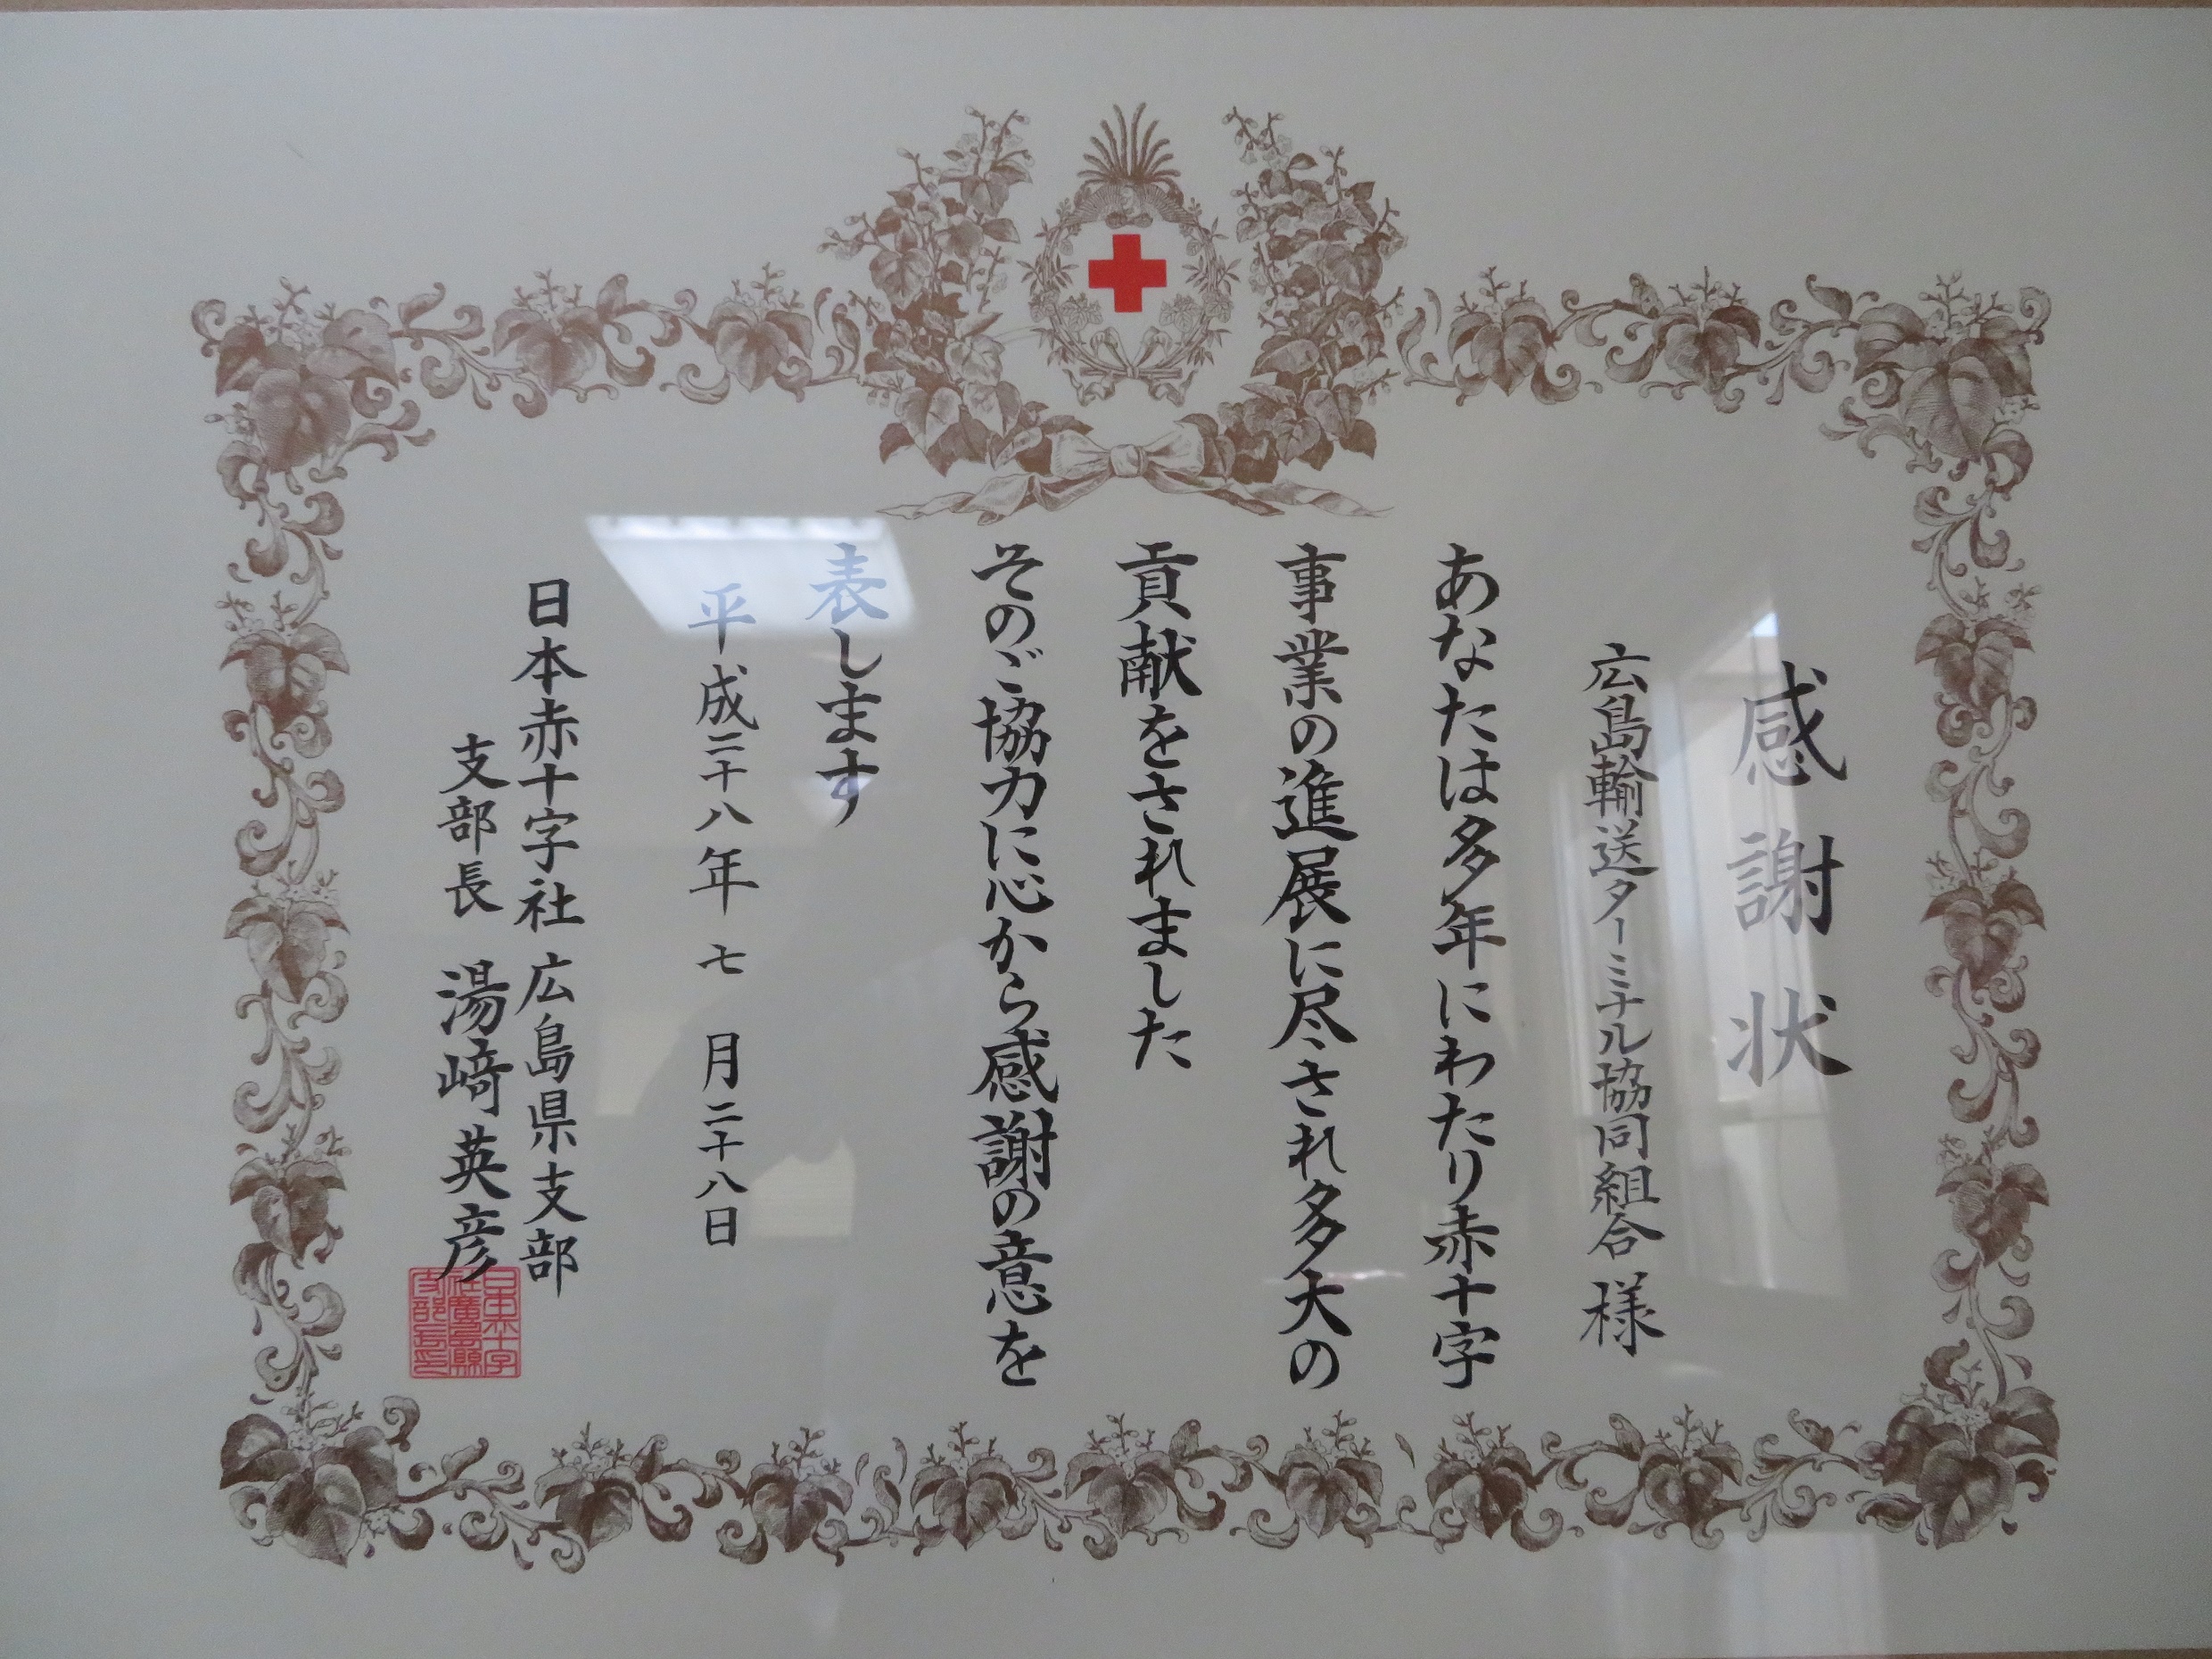 感謝状
広島輸送ターミナル協同組合 様
あなたは多年にわたり赤十字
事業の進展に尽されさ多大の
貢献をされました
そのご協力に心から感謝の意を
表します
平成二十八年 七 月二十八日
日本赤十字社 広島県支部
支部長 湯﨑英彦
日本赤十字
社廣島縣
支部長印